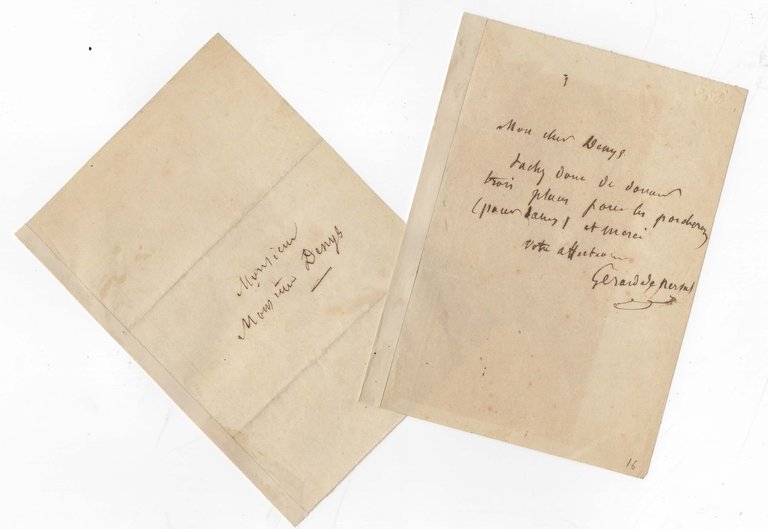 Monsieur
Monsieur Denys
Mon cher Denys
Tachez donc de donner
trois places pour les porcherons
(pour dames) et merci
votre affectionné
Gérard de Nerval
16